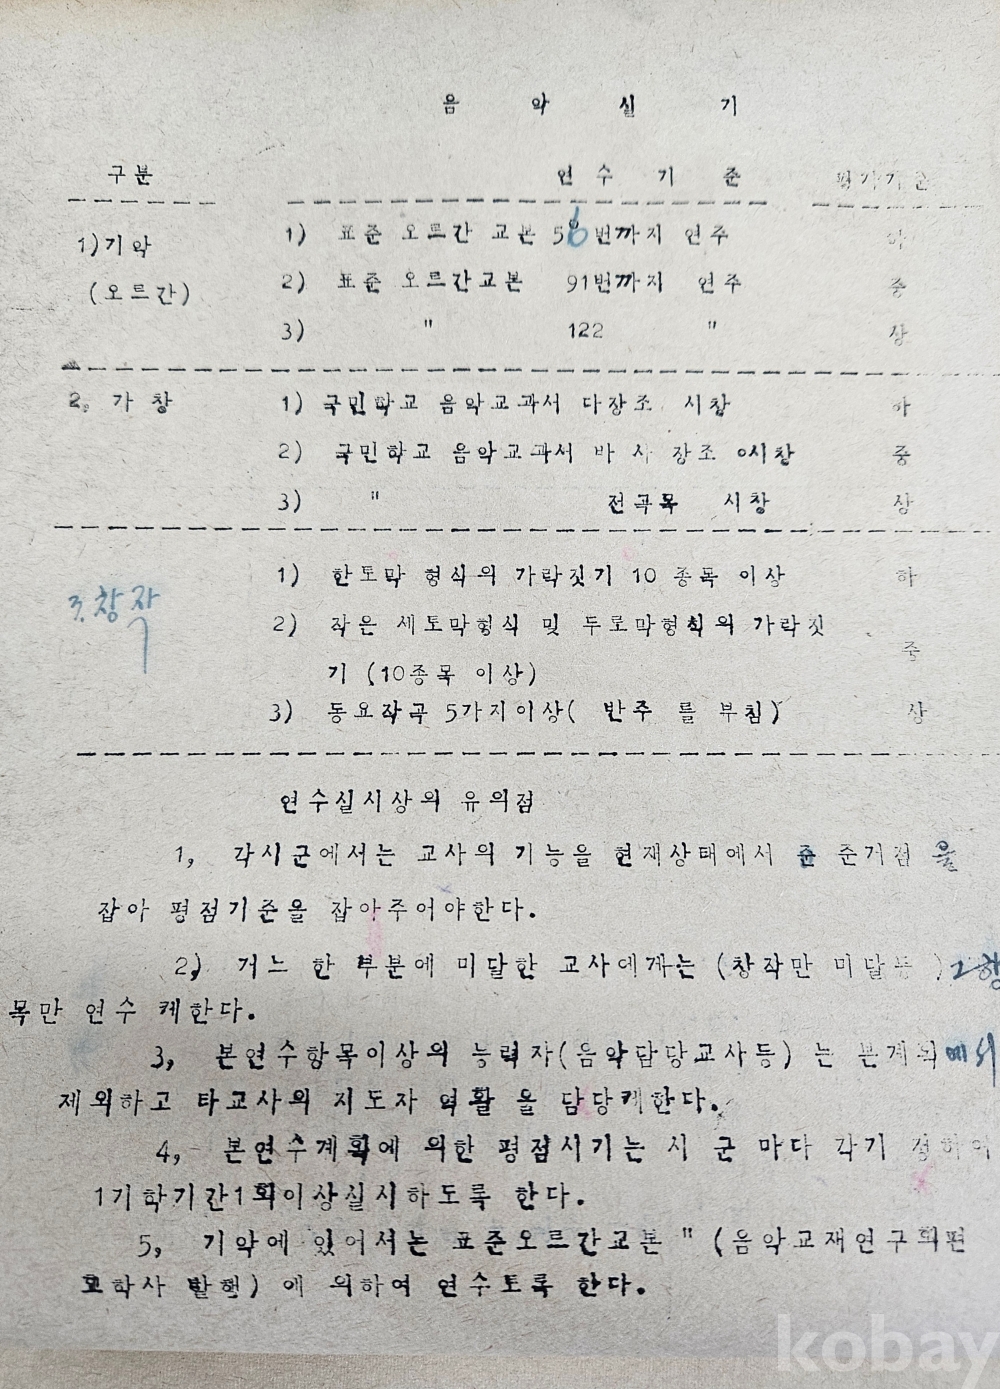 음 악 실 기
구분 연 수 기 준 평가기준
1)기악 1) 표준 오르간 교본 56번까지 연주 하
(오르간) 2) 표준 오르간교본 91번까지 연주 중
3) " 122 " 상
2, 가창 1) 국민학교 음악교과서 다장조 시창 하
2) 국민학교 음악교과서 바 사 장조 시창 중
3) " 전곡목 시창 상
3. 창작 1) 한토막 형식의 가락짓기 10 종목 이상 하
2) 작은 세토막형식 및 두로막형식의 가락짓
기 (10종목 이상) 중
3) 동요작곡 5가지이상( 반주 를 부침) 상
연수실시상의 유의점
1, 각시군에서는 교사의 기능을 현재상태에서 준 준거점 을
잡아 평점기준을 잡아주어야한다.
2,) 거느 한 부분에 미달한 교사에게는 (창작만 미달등 ) 그항
목만 연수 케한다.
3, 본연수항목이상의 능력자(음악담당교사등) 는 본계획에서
제외하고 타교사의 지도자 역활 을 담당케한다.
4, 본연수계획에 의한 평점시기는 시 군 마다 각기 정하여
1기학기간1회이상실시하도록 한다.
5, 기악에 있어서는 표준오르간교본 " (음악교재연구회편
발행) 에 의하여 연수토록 한다.
kobay